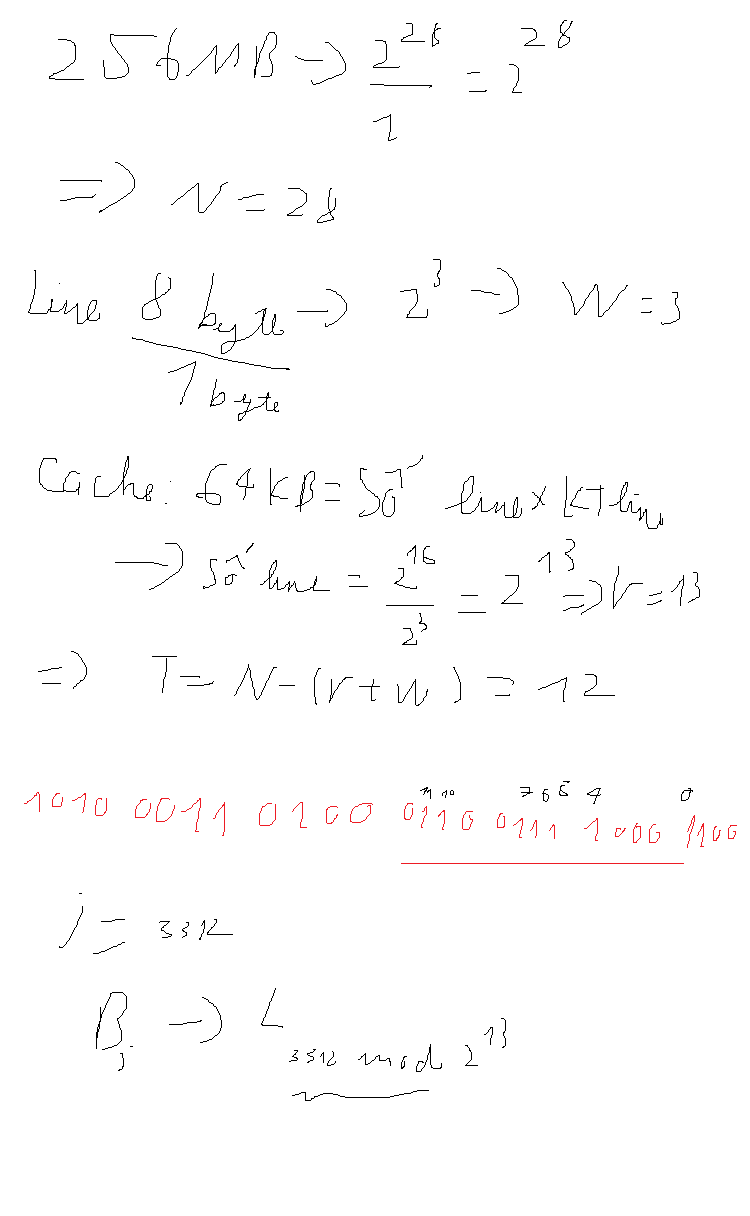 256MB → 2^28 / 1 = 2^28
⇒ N = 28
Line 8 byte / 1 byte → 2^3 → W = 3
Cache: 64KB = Số line × KT line
→ Số line = 2^16 / 2^3 = 2^13 ⇒ r = 13
⇒ T = N - (r + w) = 12
11 10 7 6 5 4 0
1010 0011 0100 0110 0111 1000 1100
j = 3312
Bj → L 3312 mod 2^13